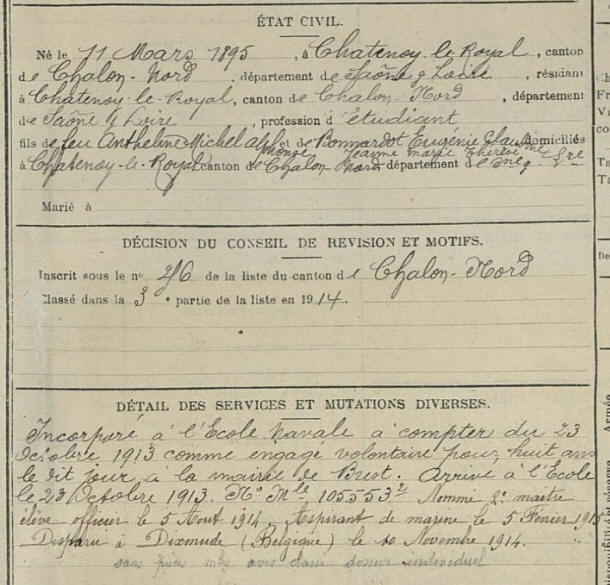 ÉTAT CIVIL.
Né le 11 Mars 1895, à Chatenoy-le-Royal, canton
de Chalon-Nord, département de Saône & Loire, résidant
à Chatenoy-le-Royal, canton de Chalon-Nord, département
de Saône & Loire, profession d'étudiant
fils de feu Anthelme Michel Alphonse et de Bonnardot Eugénie Claudine domiciliés
Jeanne Marie Thérèse
à Chatenoy-le-Royal canton de Chalon-Nord département de
Marié à
DÉCISION DU CONSEIL DE REVISION ET MOTIFS.
Inscrit sous le n° de la liste du canton de Chalon-Nord
Classé dans la 3e partie de la liste en 1914.
DÉTAIL DES SERVICES ET MUTATIONS DIVERSES.
Incorporé à l'Ecole navale à compter du 23
Octobre 1913 comme engagé volontaire pour huit ans
le dit jour à la mairie de Brest. Arrivé à l'Ecole
le 23 Octobre 1913. N° Mle 105553² Nommé 2e maître
élève officier le 5 Aout 1914, Aspirant de marine le 5 Février 1915
Disparu à Dixmude (Belgique) le 10 Novembre 1914.
sans avis dans individuel